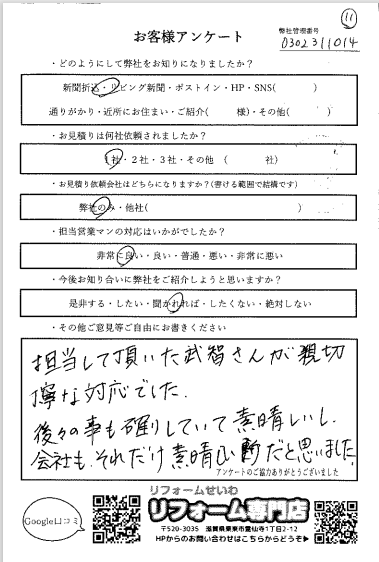 ⑪
お客様アンケート
弊社管理番号
0302311014
・どのようにして弊社をお知りになりましたか？
新聞折込・リビング新聞・ポストイン・HP・SNS( )
通りがかり・近所にお住まい・ご紹介( 様)・その他( )
・お見積りは何社依頼されましたか？
1社・２社・３社・その他 ( 社)
・お見積り依頼会社はどちらになりますか？(書ける範囲で結構です)
弊社のみ・他社( )
・担当営業マンの対応はいかがでしたか？
非常に良い・良い・普通・悪い・非常に悪い
・今後お知り合いに弊社をご紹介しようと思いますか？
是非する・したい・聞かれれば・したくない・絶対しない
・その他ご意見等ご自由にお書きください
担当して頂いた武智さんが親切
寧な対応でした.
後々の事も確りしていて素晴しいし.
会社も.それだけ素晴しい だと思いました.
アンケートのご協力ありがとうございました
Google口コミ
リフォームせいわ
リフォーム専門店
〒520-3035 滋賀県栗東市霊仙寺1丁目2-12
HPからのお問い合わせはこちらからどうぞ▶